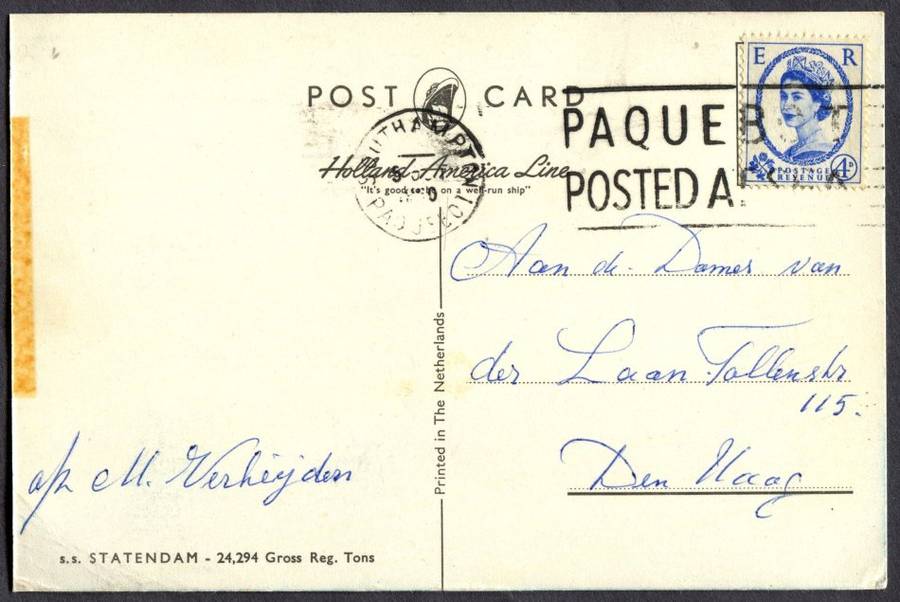 POST CARD
Holland-America Line
"It's good to be on a well-run ship"
SOUTHAMPTON
PAQUEBOT
POSTED A
E R
POSTAGE
REVENUE
4D
Aan de Dames van
der Laan. Tollenstr
115.
Den Haag
Printed in The Netherlands
M. Verheijden
s.s. STATENDAM - 24,294 Gross Reg. Tons